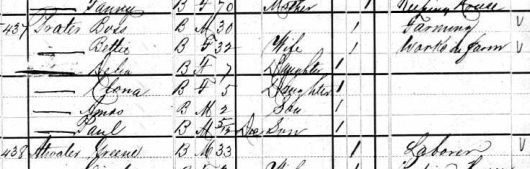 Fanny B F 70 Mother Keeping House
437 Prater Boss B M 30 1 Farming
— Bettie B F 32 Wife 1 Works on farm
— Delia B F 7 Daughter 1
— Clona B F 5 Daughter 1
— Amos B M 2 Son 1
— Paul B M 5/12 Dec Son 1
438 Atwater Greene B M 33 1 Laborer